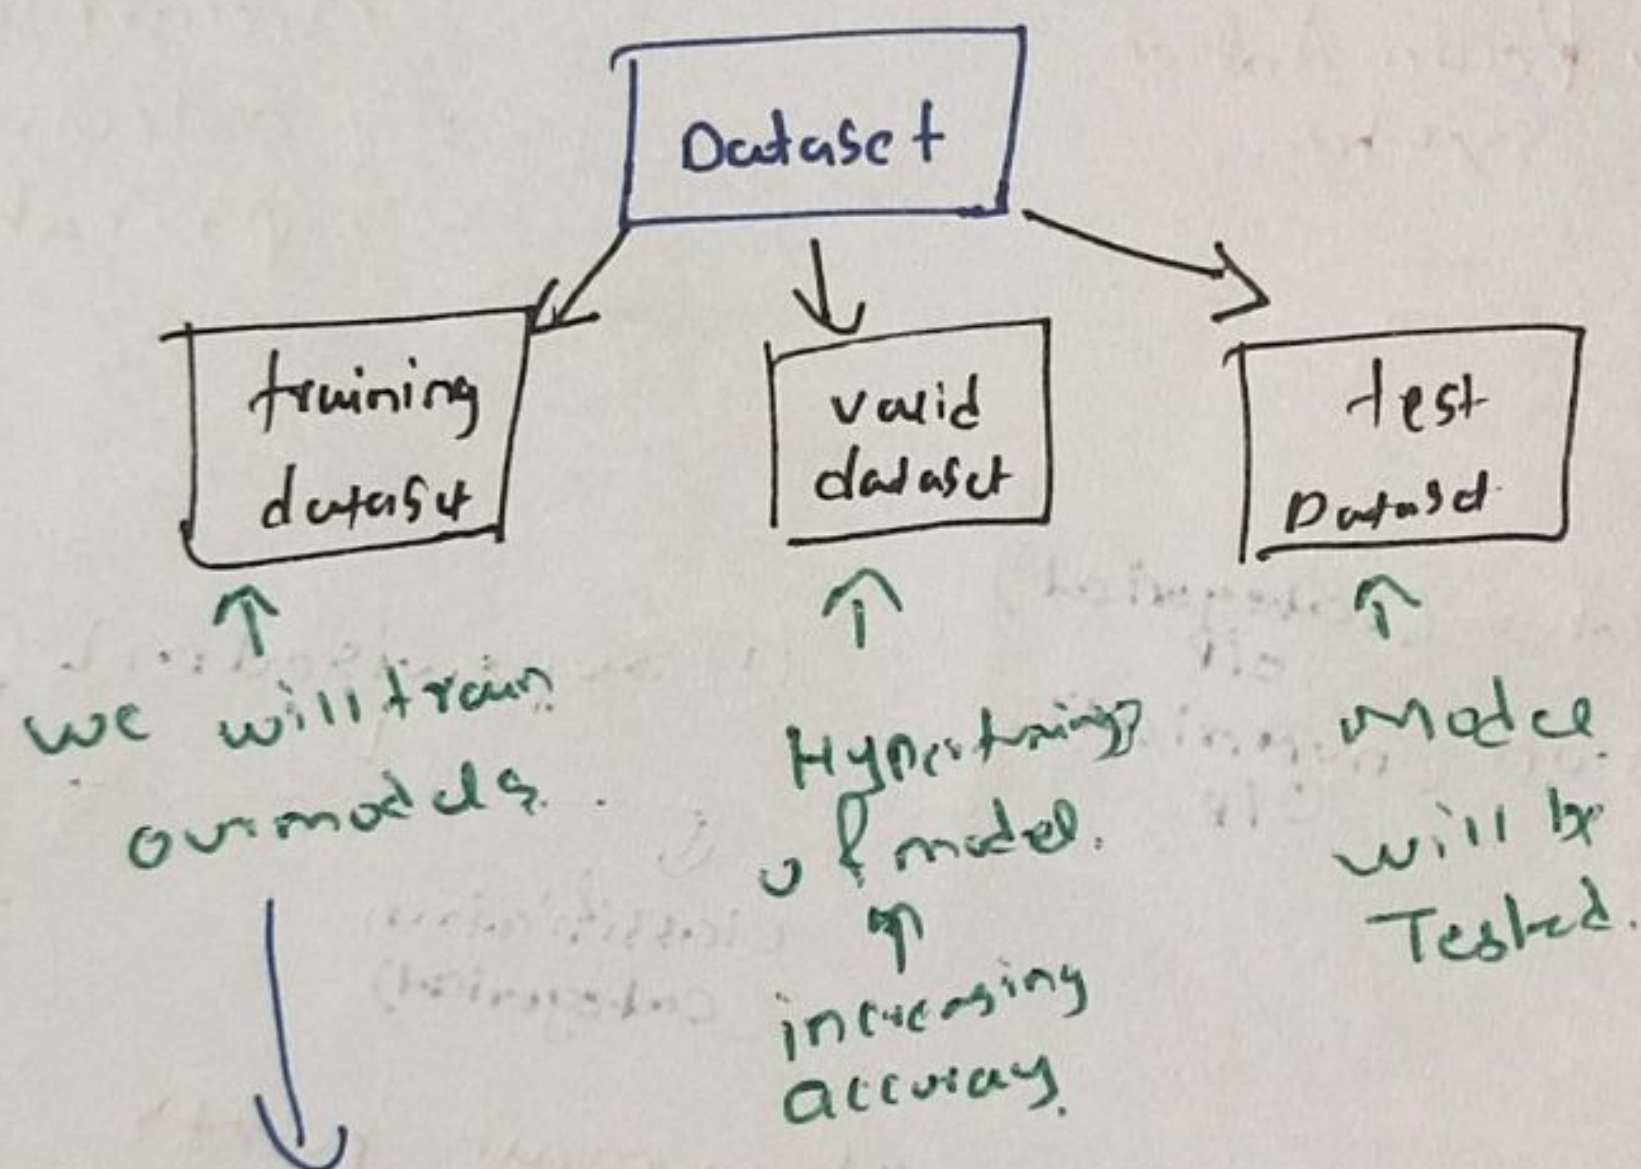 Dataset
training
dataset
valid
dataset
test
Dataset
we will train
our models.
Hypertuning
of model.
increasing
accuracy.
Model
will be
Tested.